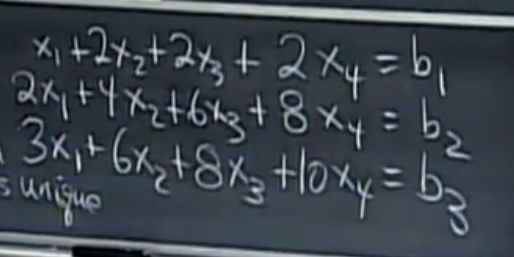 x₁+2x₂+2x₃+2x₄=b₁
2x₁+4x₂+6x₃+8x₄=b₂
3x₁+6x₂+8x₃+10x₄=b₃
s unique